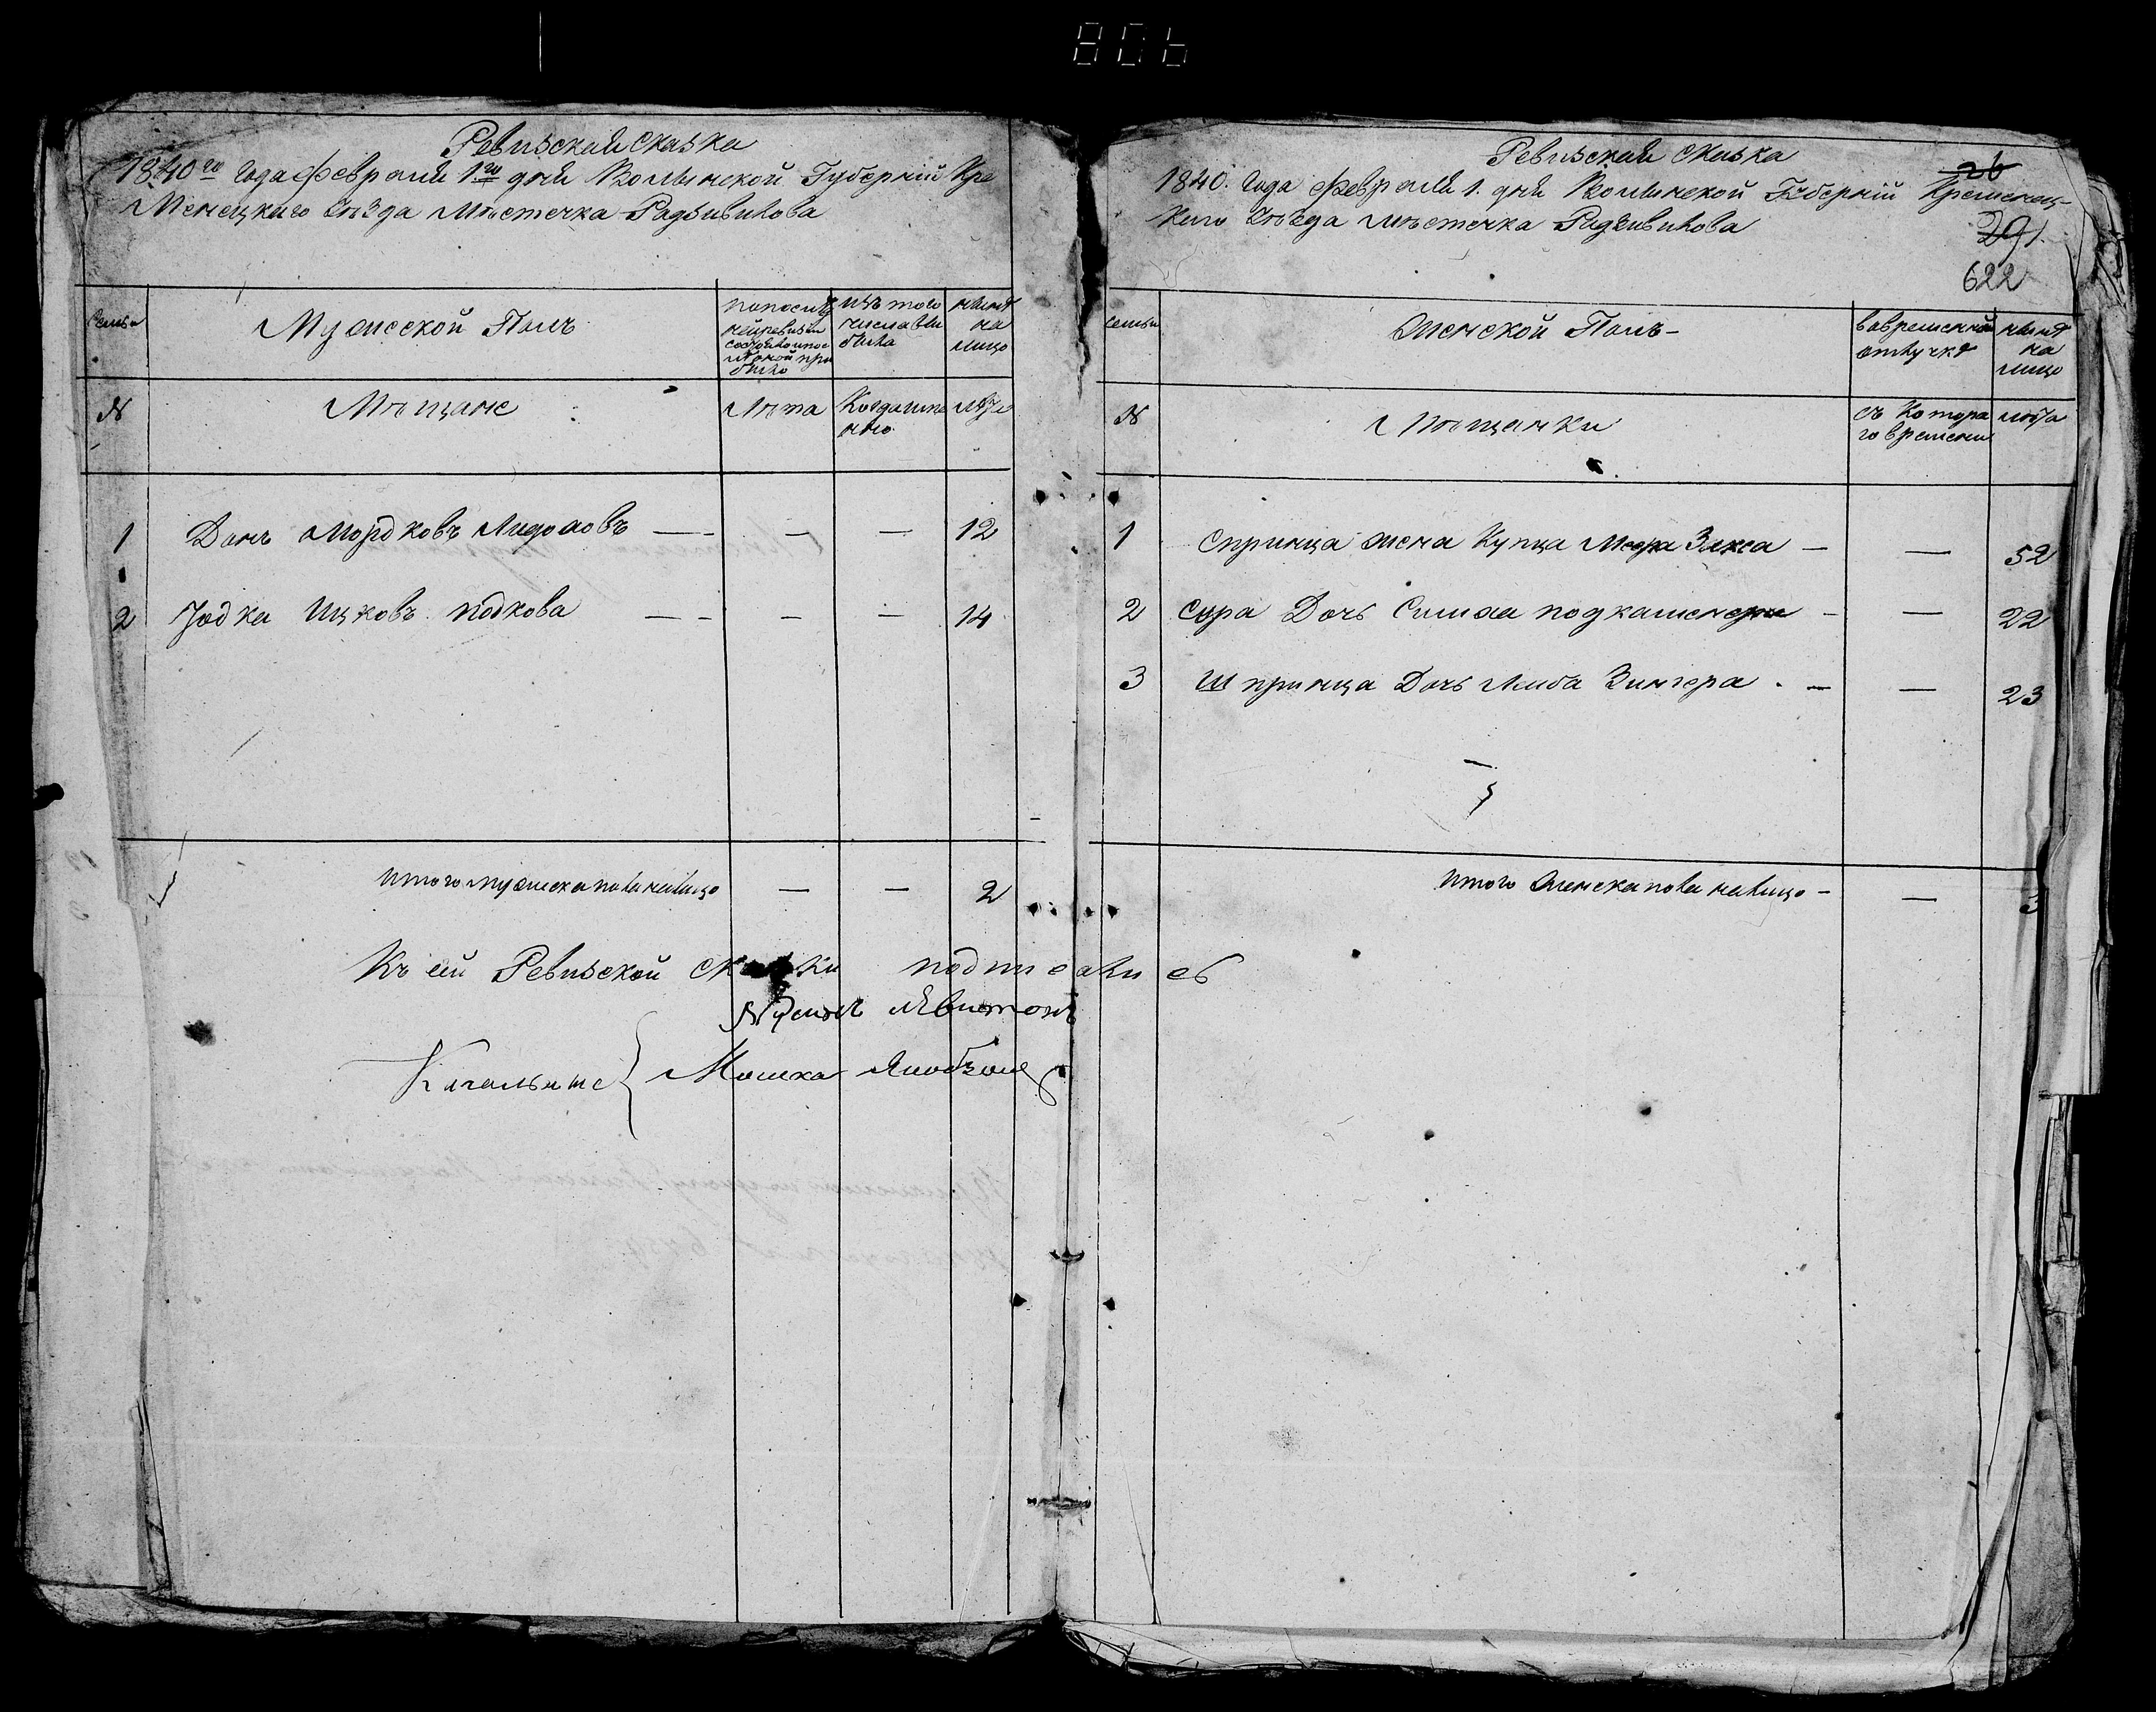 806
Ревизская сказка
1840го Года февраля 1го дня Волынской Губерній Кре
Менецкаго Уѣзда Мѣстечка Радзивилова
Семьи
Мужеской Полъ
из того числа выбыло
нынѣ на лицо
№
Мѣщане
Лѣта
Когда именно
Лѣта
1 Данъ Мордковъ — — — 12
2 Іодка Ицковъ подкова — — — 14
итого мужеска пола налицо — — 2
Къ сей Ревизской подписались
Левитонъ
Кагальные Мошка
Ревизская сказка
26
1840. Года февраля 1. дня Волынской Губерній Кременец-
каго Уѣзда мѣстечка Радзивилова
291.
622
семьи
Женской Полъ-
во временной отлучкѣ
нынѣ на лицо
№
Мѣщанки
съ котораго времени
лѣта
1 Спринца жена Купца Меера Закса — — 52
2 Сура Дочь подкаменера — — 22
3 Шпринца Дочь Лейба Зингера . — — 23
итого Женска пола налицо — — 3